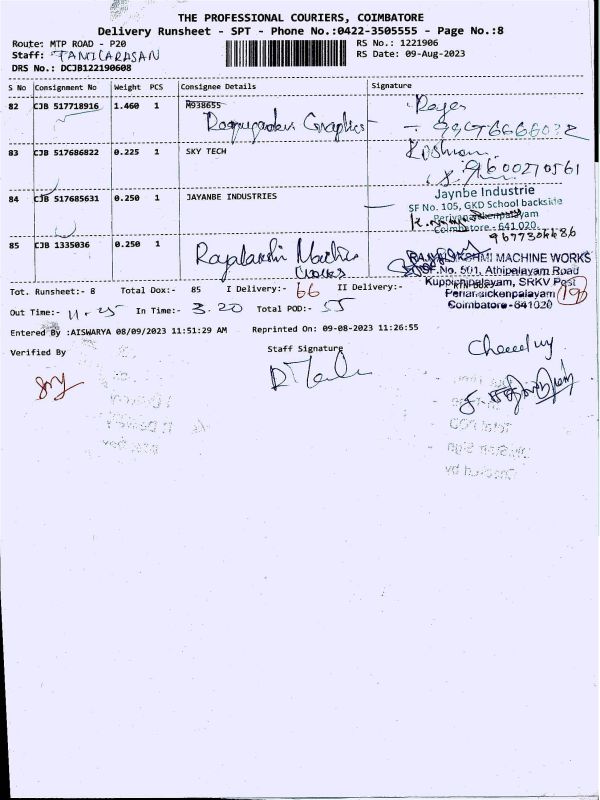 THE PROFESSIONAL COURIERS, COIMBATORE
Delivery Runsheet - SPT - Phone No.:0422-3505555 - Page No.:8
Route: MTP ROAD - P20 RS No.: 1221906
Staff: RS Date: 09-Aug-2023
DRS No.: DCJB122190608
S No Consignment No Weight PCS Consignee Details Signature
82 CJB 517718916 1.460 1 M938655
Graphics
83 CJB 517686822 0.225 1 SKY TECH
9600270561
84 CJB 517685631 0.250 1 JAYANBE INDUSTRIES
Jaynbe Industrie
SF No. 105, GKD School backside
Periyanaickenpalayam
Coimbatore - 641 020.
85 CJB 1335036 0.250 1 Rajalakshi Machine
Works
RAJALAKSHMI MACHINE WORKS
SF.No. 501, Athipalayam Road
Kuppichipalayam, SRKV Post
Perianaickenpalayam
Coimbatore-641020
Tot. Runsheet:- 8 Total Dox:- 85 I Delivery:- 66 II Delivery:-
Out Time:- 11.25 In Time:- 3.20 Total POD:- 55
Entered By :AISWARYA 08/09/2023 11:51:29 AM Reprinted On: 09-08-2023 11:26:55
Verified By Staff Signature